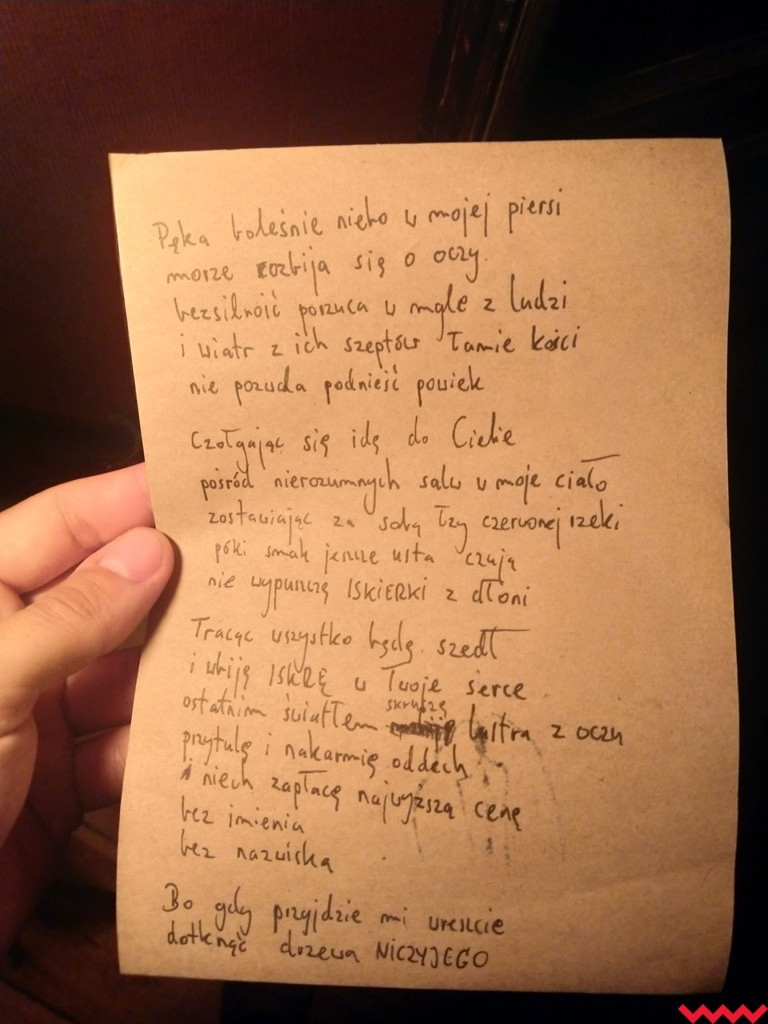 Pęka boleśnie niebo w mojej piersi
morze rozbija się o oczy.
bezsilność porzuca w mgle z ludzi
i wiatr z ich szeptów łamie kości
nie pozwala podnieść powiek
Czołgając się idę do Ciebie
pośród nierozumnych salw w moje ciało
zostawiając za sobą łzy czerwonej rzeki
póki smak jeszcze usta czują
nie wypuszczę ISKIERKI z dłoni
Tracąc wszystko będę szedł
i wbiję ISKRĘ w Twoje serce
ostatnim światłem skruszę lustra z oczu
przytulę i nakarmię oddech
i niech zapłacę najwyższą cenę
bez imienia
bez nazwiska
Bo gdy przyjdzie mi wreszcie
dotknąć drzewa NICZYJEGO